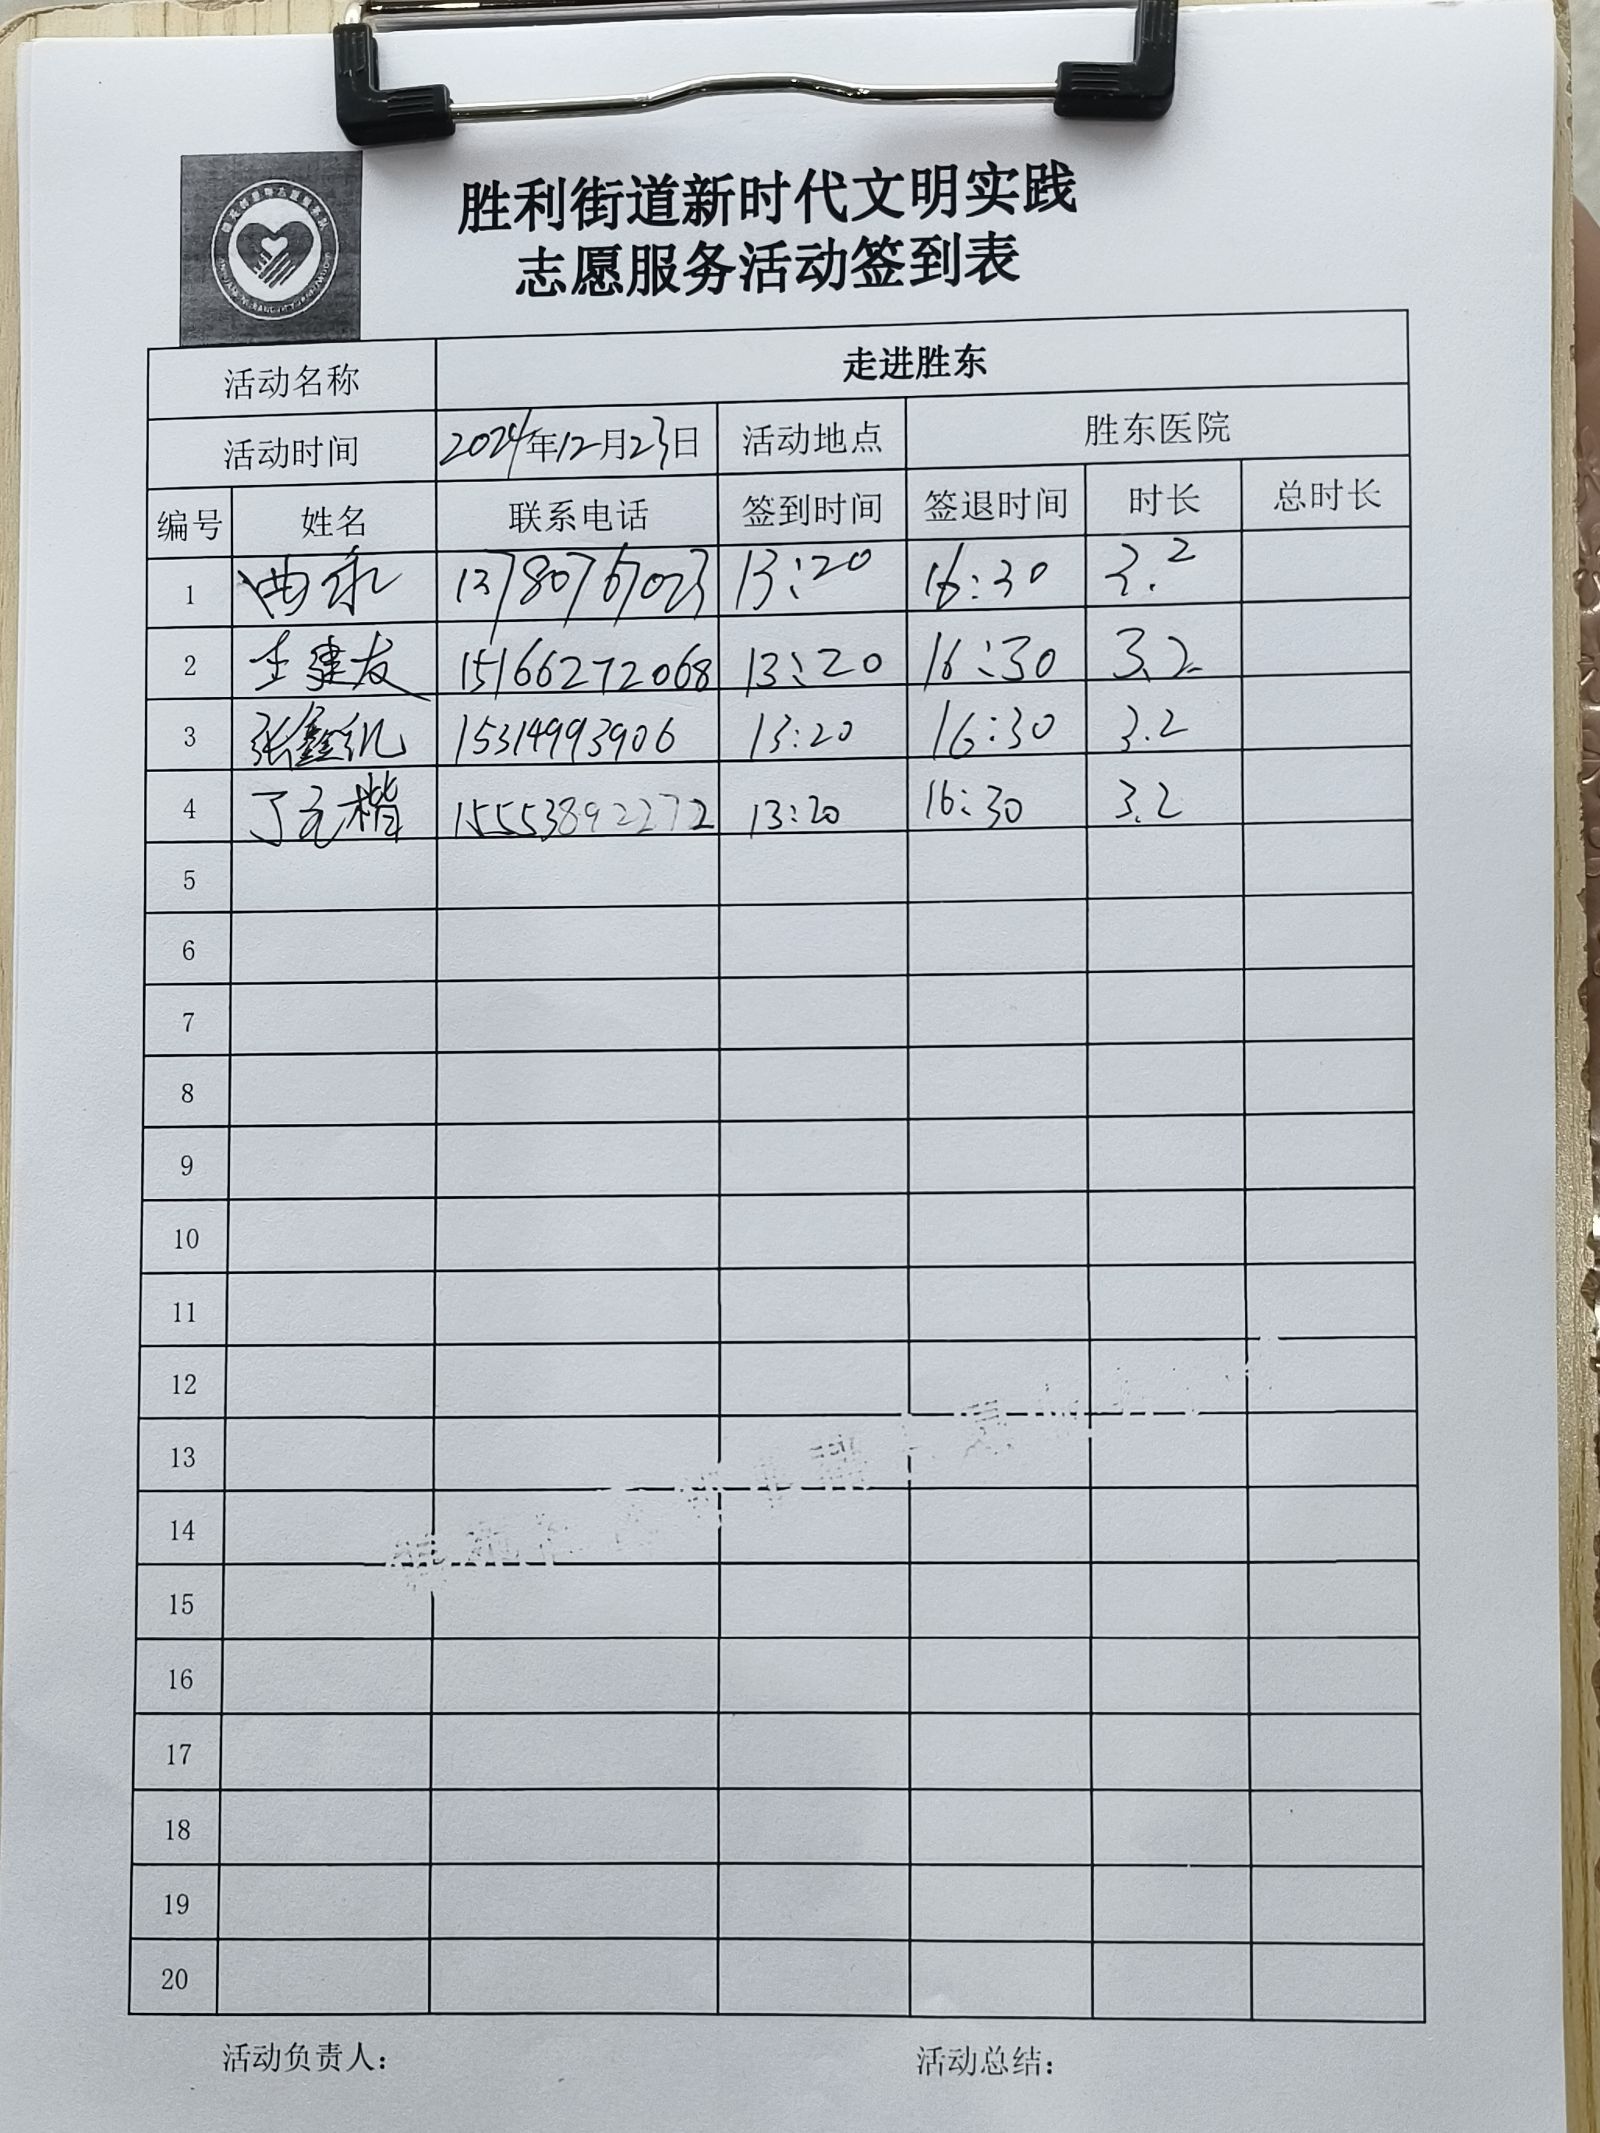 胜利街道新时代文明实践
志愿服务活动签到表
活动名称 走进胜东
活动时间 2024年12月23日 活动地点 胜东医院
编号 姓名 联系电话 签到时间 签退时间 时长 总时长
1 曲永 13780767023 13:20 16:30 3.2
2 王建友 15166272068 13:20 16:30 3.2
3 张鑫 15314993906 13:20 16:30 3.2
4 丁元楷 15553892272 13:20 16:30 3.2
5
6
7
8
9
10
11
12
13
14
15
16
17
18
19
20
活动负责人: 活动总结: